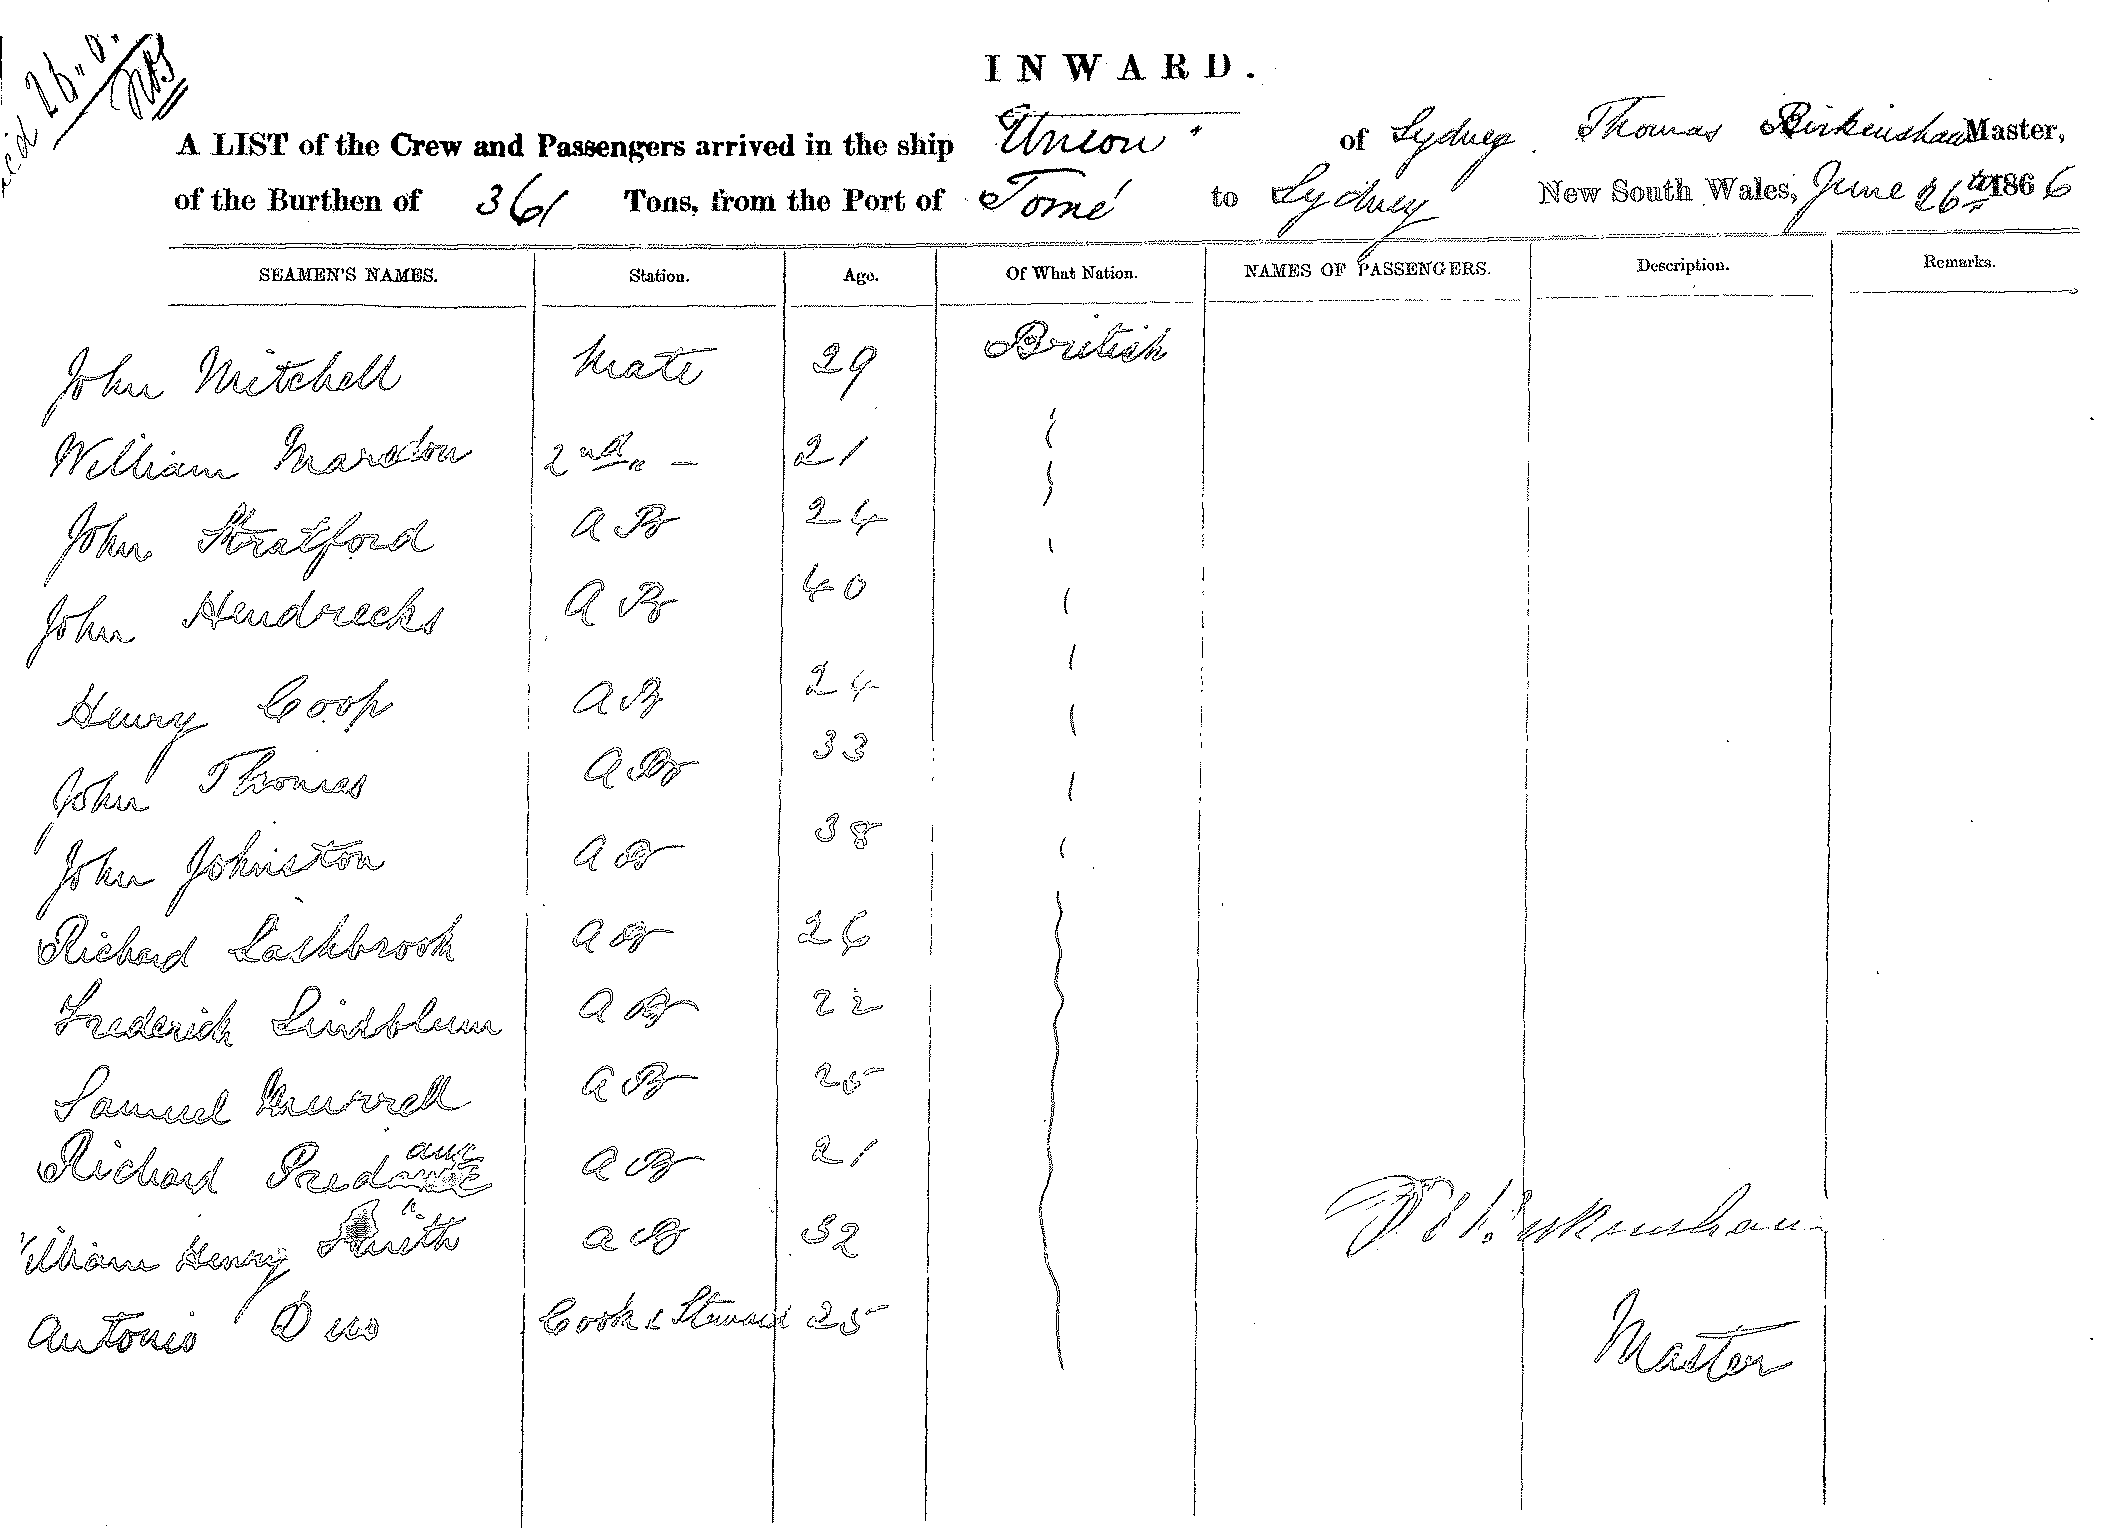 INWARD.
A LIST of the Crew and Passengers arrived in the ship "Union" of Sydney. Thomas Birkenshaw Master,
of the Burthen of 361 Tons, from the Port of Tomé to Sydney New South Wales, June 26th 1866
SEAMEN'S NAMES. Station. Age. Of What Nation. NAMES OF PASSENGERS. Description. Remarks.
John Mitchell Mate 29 British
William Maredon 2nd " - 21
John Stratford AB 24
John Hendrecks AB 40
Henry Coop AB 24
John Thomas AB 33
John Johnston AB 38
Richard Lashbrook AB 26
Frederick Lindblum AB 22
Samuel Murrell AB 25
Richard AB 21
William Henry Smith AB 32
Antonio Cook & Steward 25
Birkenshaw
Master